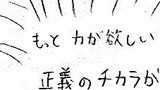 もっと力が欲しい
正義のチカラが